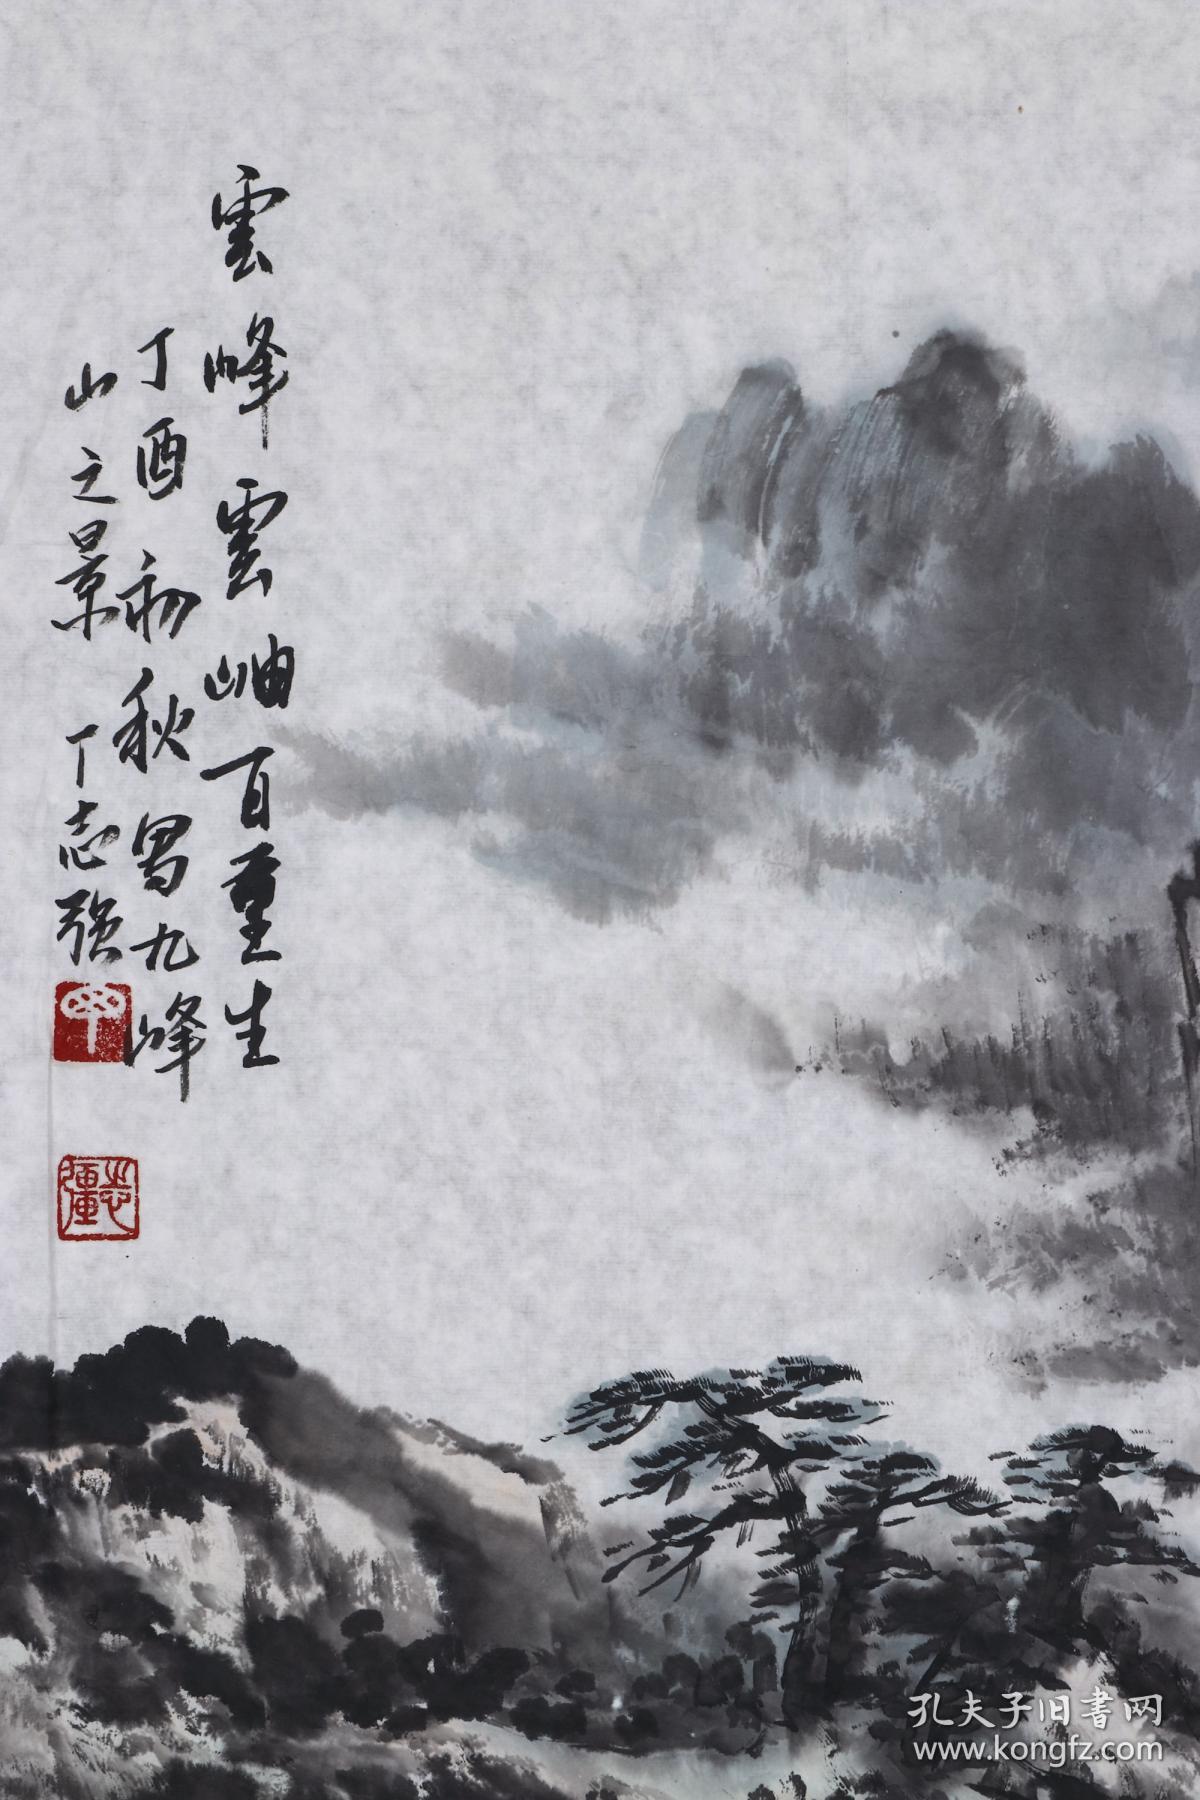 雲峰雲岫百重生
丁酉初秋寫九峰
山之景
丁志强
志彊
孔夫子旧书网
www.kongfz.com